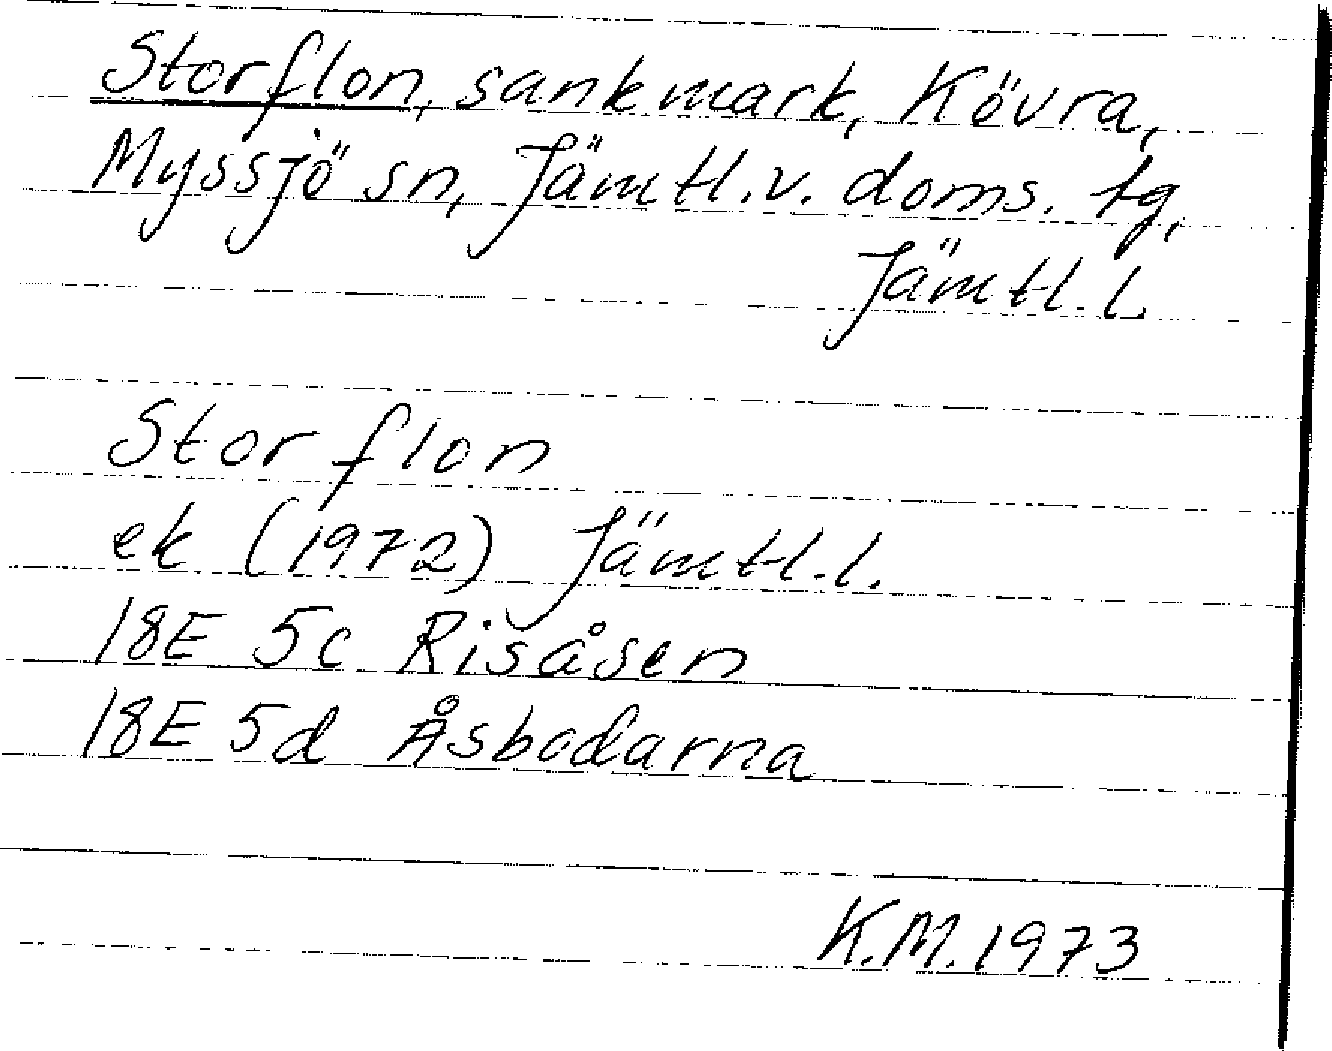 Storflon, sankmark, Kövra,
Myssjö sn, Jämtl.v. doms. tg,
Jämtl. l.
Storflon
ek (1972) Jämtl. l.
18E 5c Risåsen
18E 5d Åsbodarna
K.M. 1973